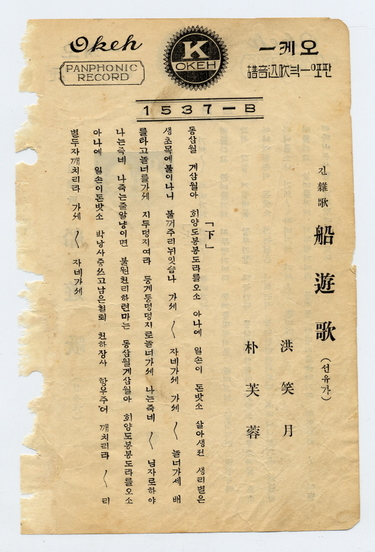 Okeh
PANPHONIC
RECORD
K
OKEH
오케ー
吹込音譜
1537-B
긴雜歌 船遊歌 (선유가)
洪笑月
朴芙蓉
「下」
동삼월 계삼월아 회양도봉봉도라를오소 아나에 일손이 돈밧소 살아생전 생리별은
생초목에불이나니 불꺼주리뉘잇슴나 가세 〱 자네가세 가세 〱 놀너가세 배
를타고놀너를가세 지두덩지여라 둥게둥덩덩지로놀너가세 나는죽네 〱 님자로하야
나는죽네 나죽는줄알냥이면 불원천리하련마는 동삼월계삼월아 회양도봉봉도라를오소
아나에 일손이돈밧소 박낭사중쓰고남은철퇴 천하장사 항우주어 깨치리라 〱 리
별두자깨치리라 가세 〱 자네가세